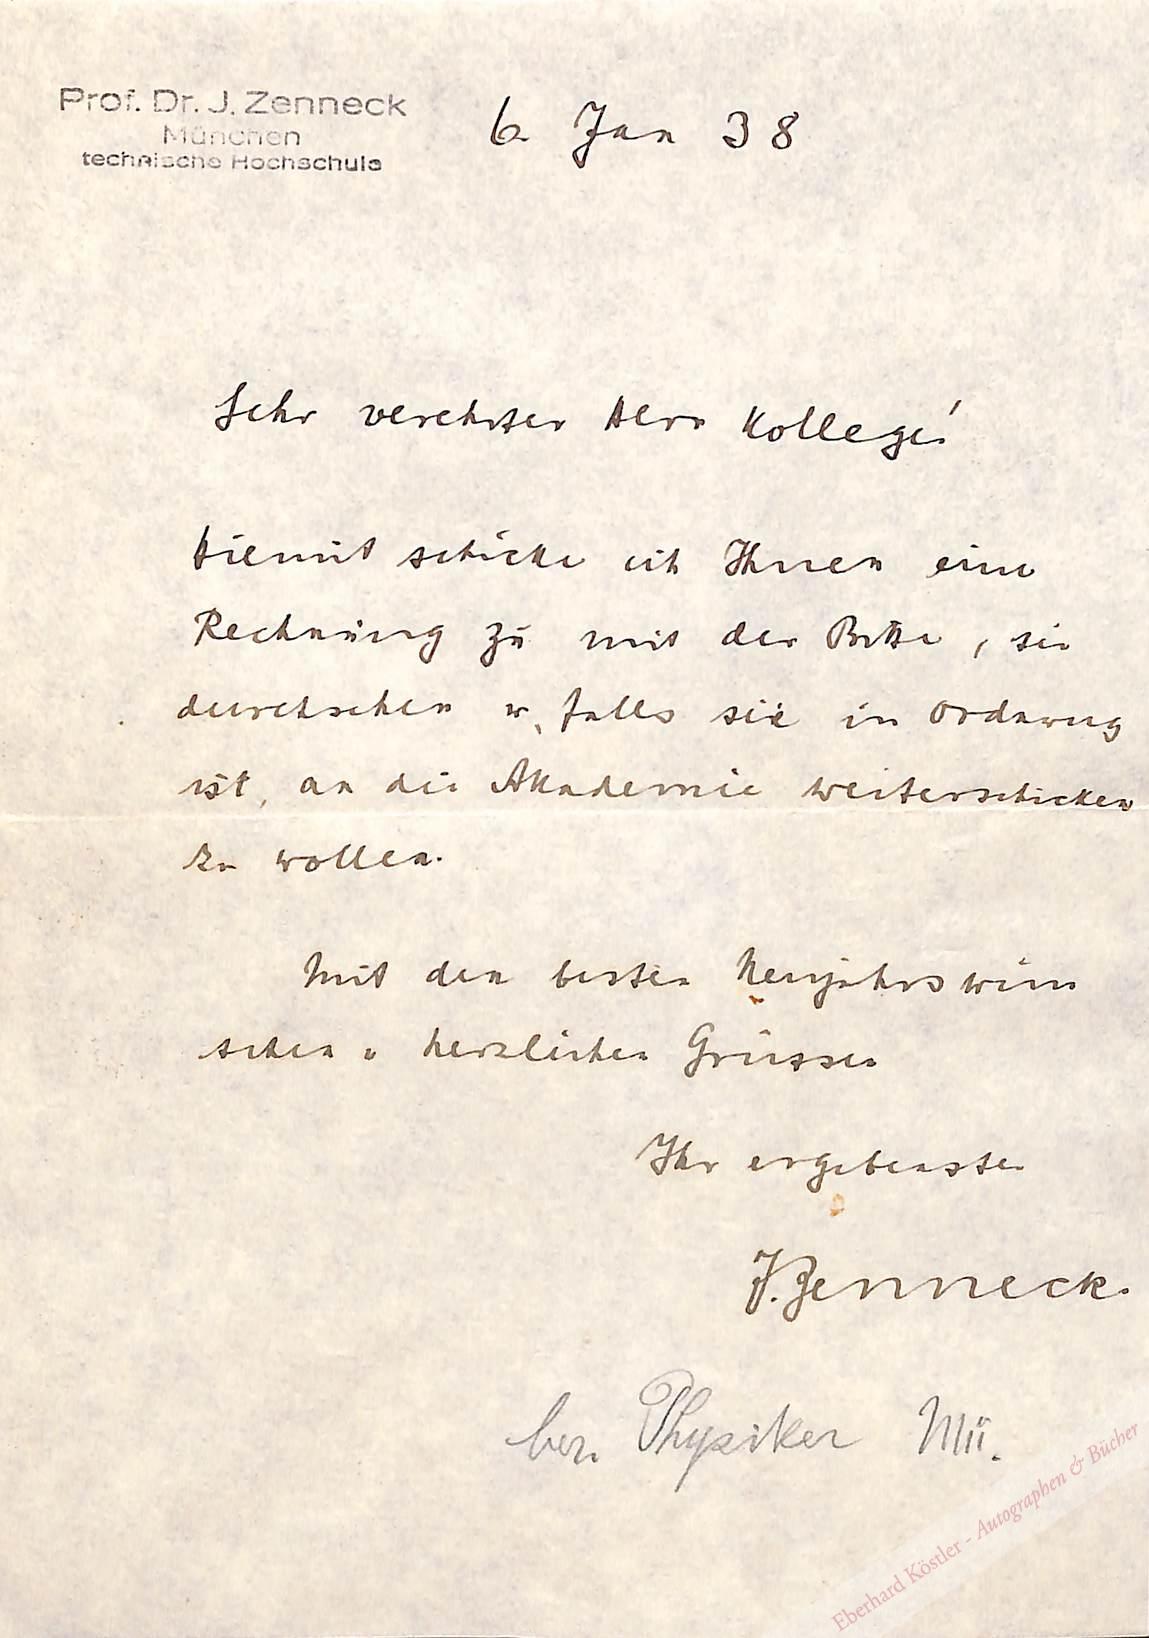 Prof. Dr. J. Zenneck
München
technische Hochschule
6. Jan 38
Sehr verehrter Herr Kollege!
Hiemit schicke ich Ihnen eine
Rechnung zu mit der Bitte, sie
durchsehen u, falls sie in Ordnung
ist, an die Akademie weiterschicken
zu wollen.
Mit den besten Neujahrswün
schen u herzlichen Grüssen
Ihr ergebenster
J. Zenneck.
ber. Physiker Mü.
Eberhard Köstler - Autographen & Bücher